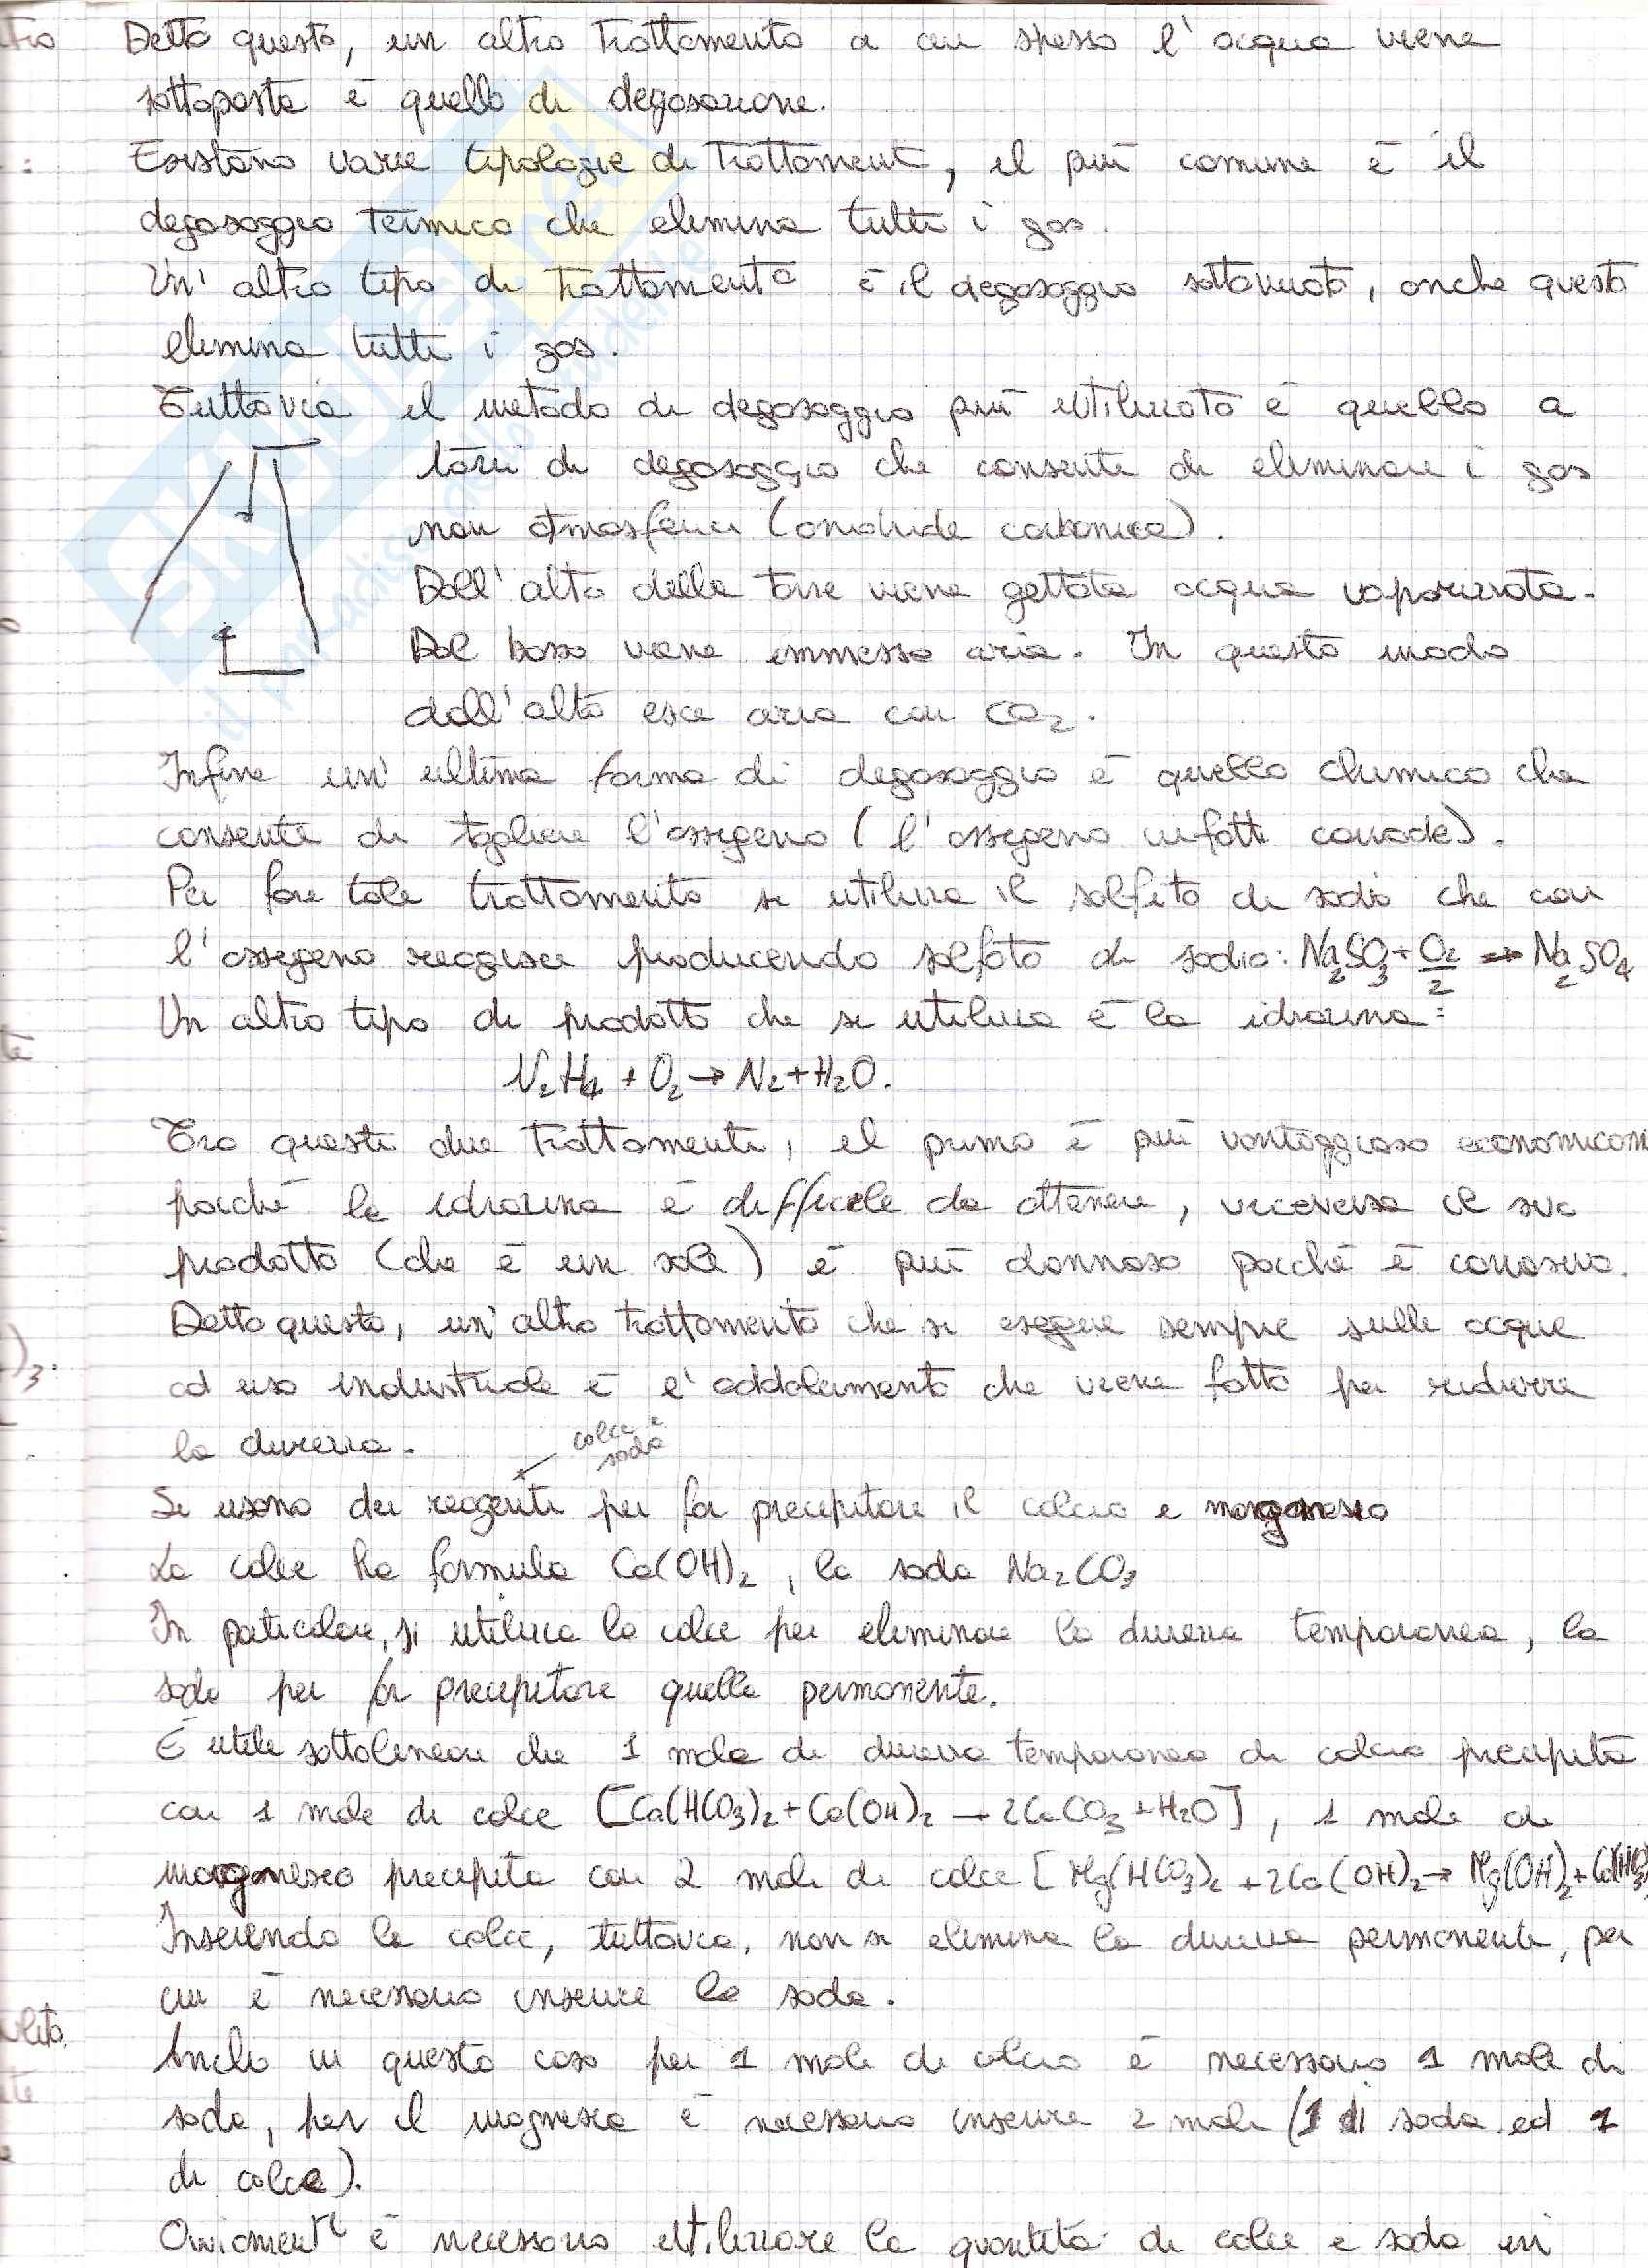 Detto questo, un altro trattamento a cui spesso l'acqua viene
sottoposta è quello di degasazione.
Esistono varie tipologie di trattamenti, il più comune è il
degasaggio termico che elimina tutti i gas.
Un' altro tipo di trattamento è il degasaggio sottovuoto, anche questo
elimina tutti i gas.
Tuttavia il metodo di degasaggio più utilizzato è quello a
torri di degasaggio che consente di eliminare i gas
non atmosferici (anidride carbonica).
Dall'alto della torre viene gettata acqua vaporizzata.
Dal basso viene immessa aria. In questo modo
dall'alto esce aria con CO2.
Infine un' ultima forma di degasaggio è quello chimico che
consente di togliere l'ossigeno (l'ossigeno infatti corrode).
Per fare tale trattamento si utilizza il solfito di sodio che con
l'ossigeno reagisce producendo solfato di sodio: Na2SO3 + O2/2 → Na2SO4
Un altro tipo di prodotto che si utilizza è la idrazina:
N2H4 + O2 → N2 + H2O.
Tra questi due trattamenti, il primo è più vantaggioso economicam
poiché la idrazina è difficile da ottenere, viceversa il suo
prodotto (che è un sale) è più dannoso poiché è corrosivo.
Detto questo, un'altro trattamento che si esegue sempre sulle acque
ad uso industriale è l'addolcimento che viene fatto per ridurre
la durezza.
calce e
soda
Si usano dei reagenti per far precipitare il calcio e magnesio
La calce ha formula Ca(OH)2, la soda Na2CO3
In particolare, si utilizza la calce per eliminare la durezza temporanea, la
soda per far precipitare quella permanente.
È utile sottolineare che 1 mole di durezza temporanea di calcio precipita
con 1 mole di calce [Ca(HCO3)2 + Ca(OH)2 → 2CaCO3 + H2O], 1 mole di
magnesio precipita con 2 moli di calce [Mg(HCO3)2 + 2Ca(OH)2 → Mg(OH)2 +
Inserendo la calce, tuttavia, non si elimina la durezza permanente, per
cui è necessario inserire la soda.
Anche in questo caso per 1 mole di calcio è necessario 1 mole di
soda, per il magnesio è necessario inserire 2 moli (1 di soda ed 1
di calce).
Ovviamente è necessario utilizzare la quantità di calce e soda in